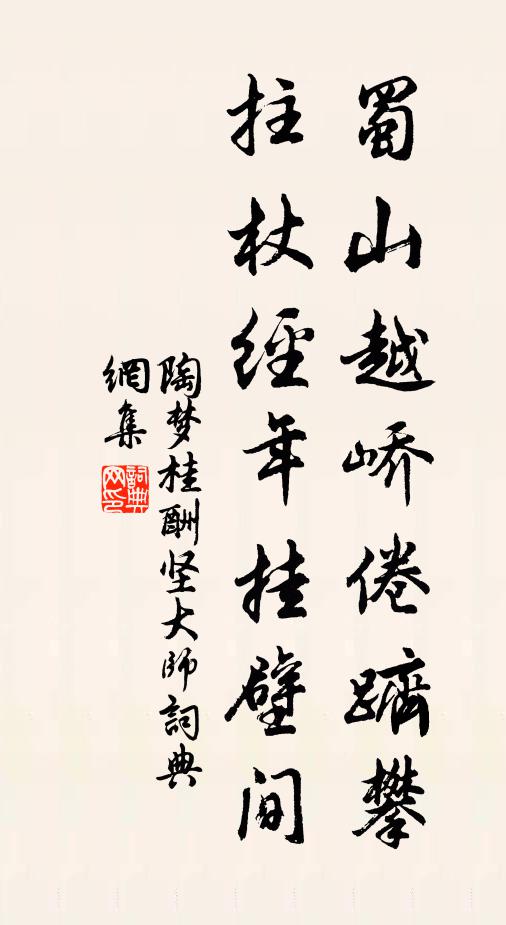 蜀山越峤倦躋攀
拄杖經年挂壁间
陶梦桂酬坚大师詞典
網集
詞典
网印